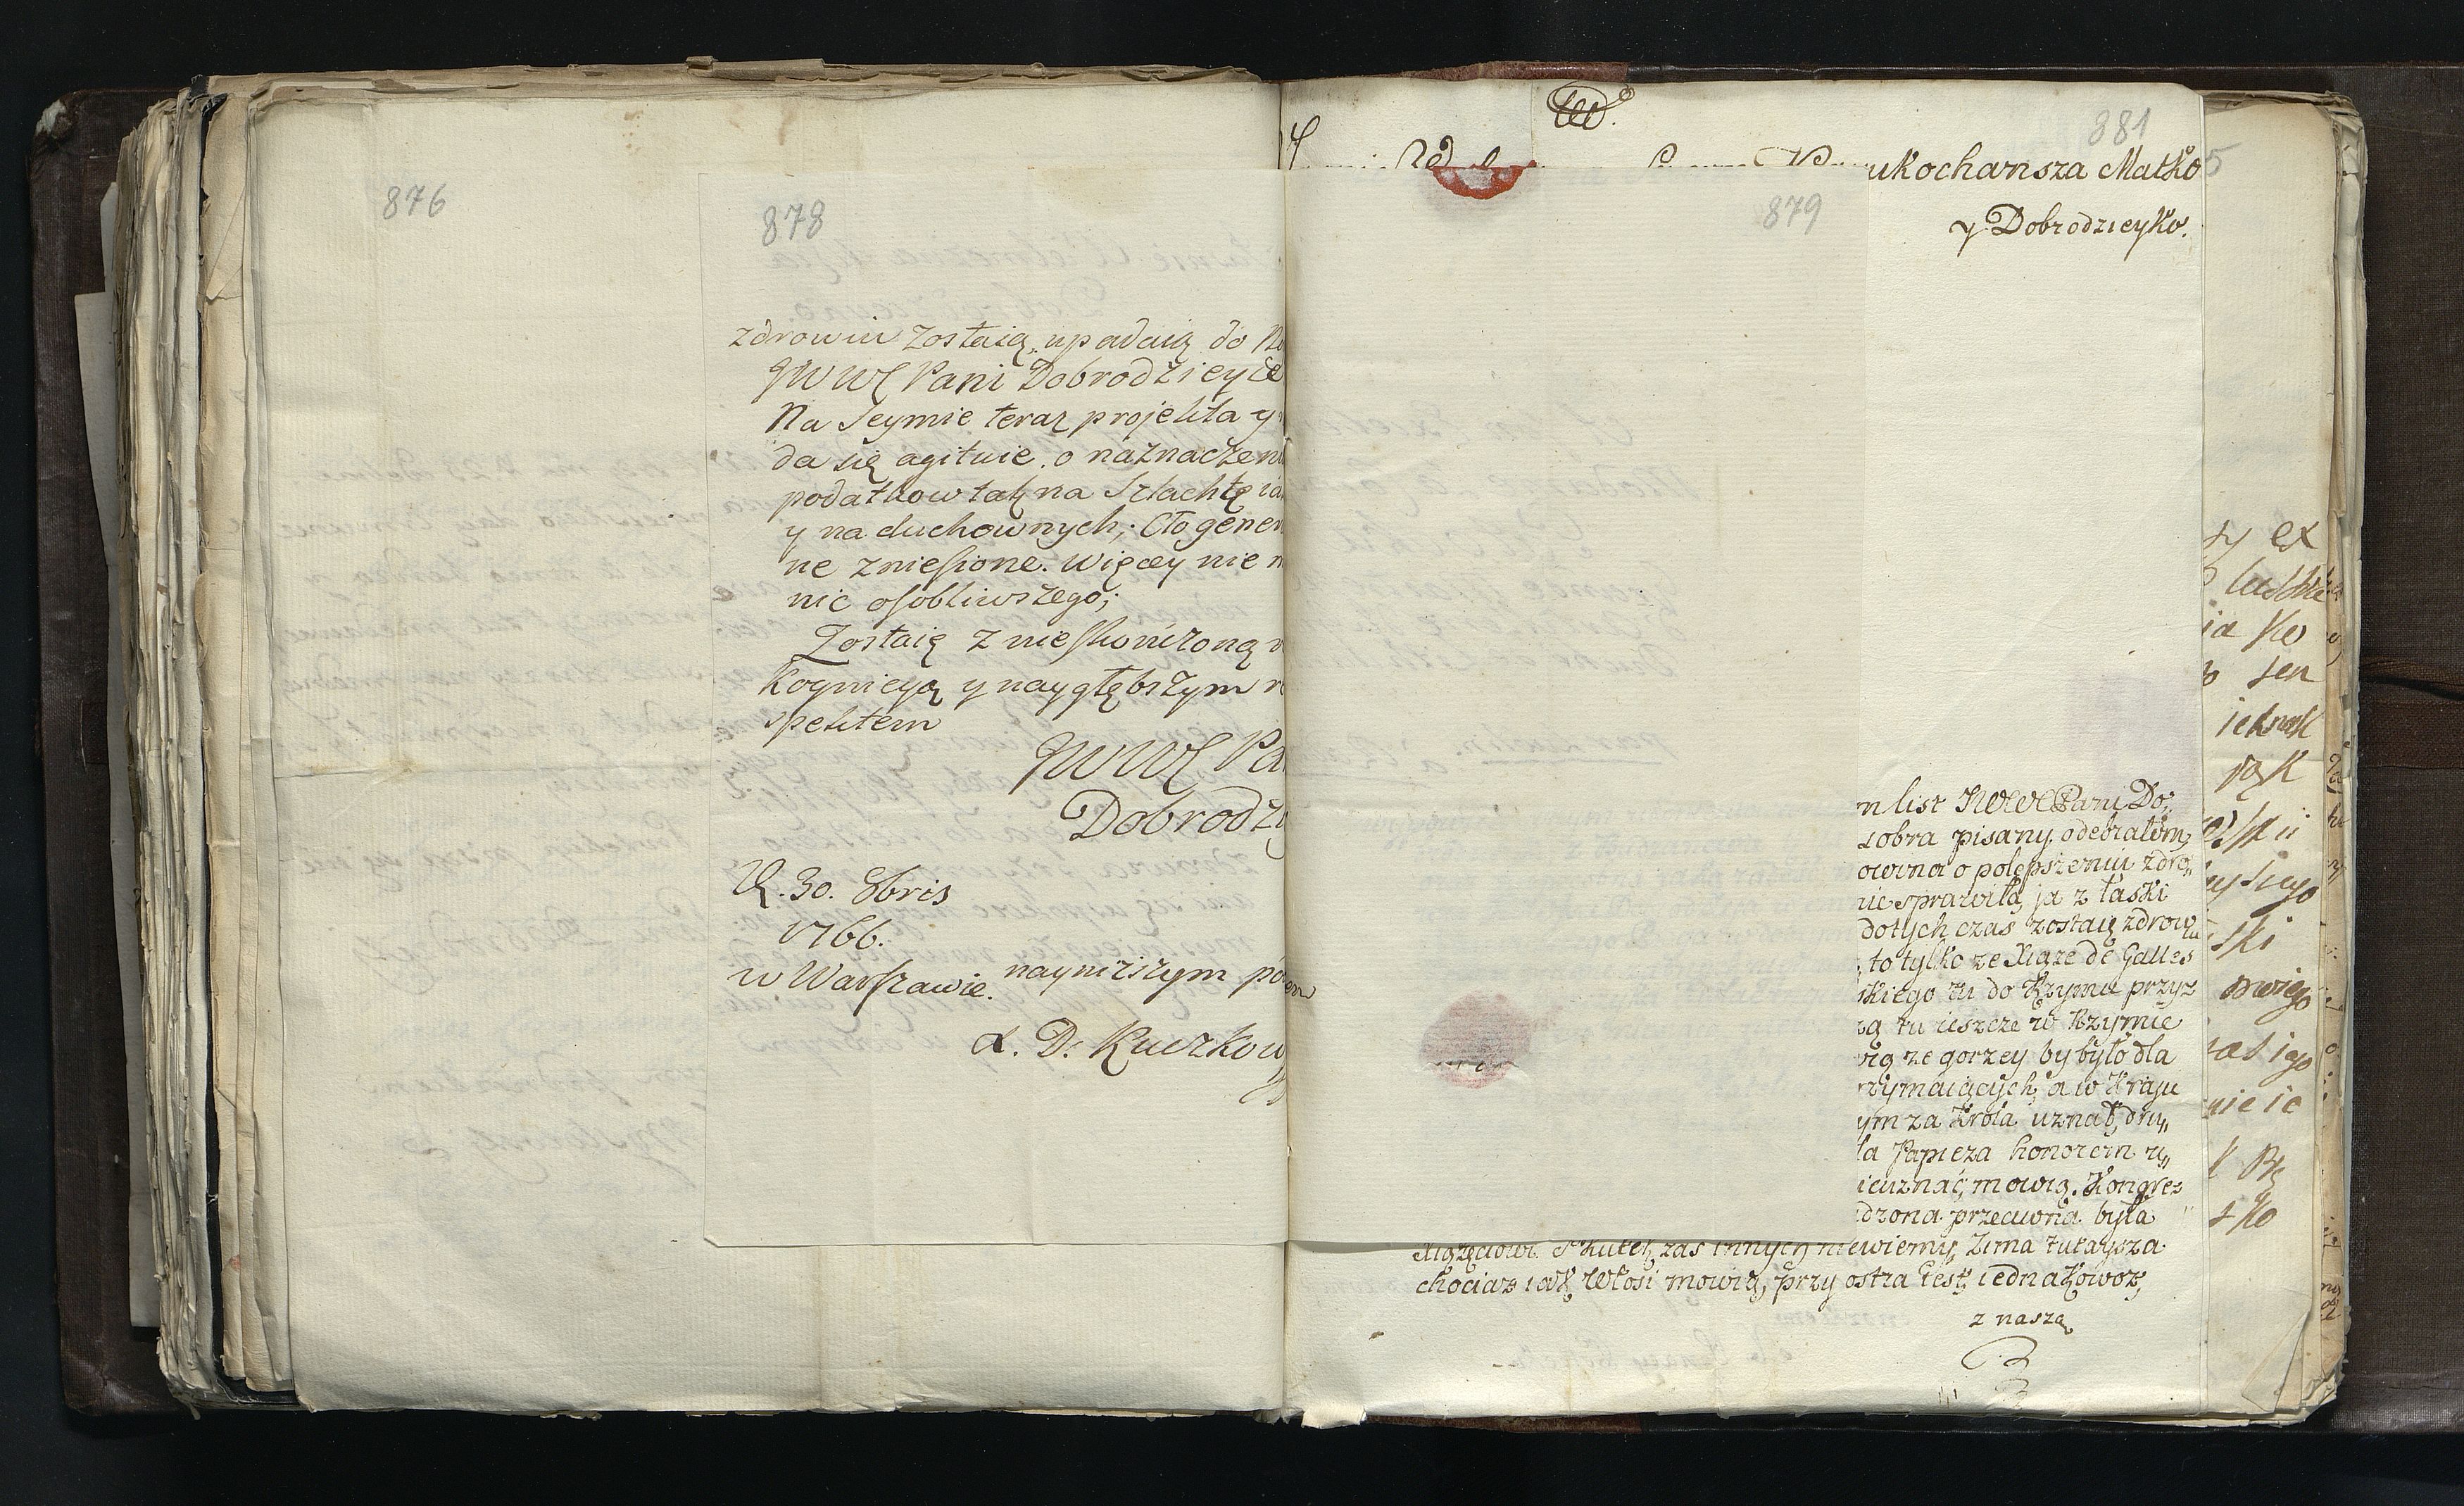 876
878
zdrowiu zostaią, upadaią do
JWWC Pani Dobrodzieyce
Na Seymie teraz projekta y
da się agituie, o naznaczeni
podatkow tak na Szlachtę ia
y na duchownych; Cło gener
ne zniesione. Więcey nie
nic osobliwszego;
Zostaię z nieskończoną
kognicyą y naygłębszym r
spektem
JWWC Pa
Dobrodzi
D. 30. 8bris
1766.
w Warszawie.
nayniższym
A. D. Kuczkow
881
879
ukochansza Matko
y Dobrodzieyko.
m list JWWC Pani Do,,
dobra pisany, odebrałem,
owna o polepszeniu zdro,,
nie sprawiła, ja z łaski
dotych czas zostaię zdrow
, to tylko ze Xiąze de Galles
skiego tu do Rzymu przyz
zą tu ieszcze w Rzymie
wią ze gorzey by było dla
rzymaiących, a w Kraju
ym za Krola uznał, dru,,
la Papieza honorem u,,
ieuznać, mowią. Kongres
dzona przeciwna była
Xiązęciowi. Skutek zas innych niewiemy, Zima tutaysza
chociaz iak Włosi mowią, przy ostra iest, iednakowoz,
z naszą
5
sy ex
ia ko
sen
iednak
rąk
ski
owiego
zasigo
nieie